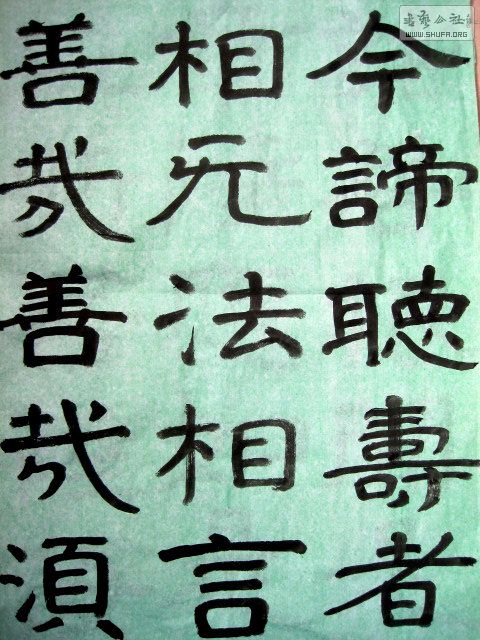 今諦聽壽者
相无法相言
善哉善哉湏
書藝公社
WWW.SHUFA.ORG